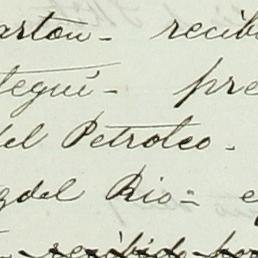 arton- recib
tegui- pre
del Petroleo.
zdel Rio= e
recibido por